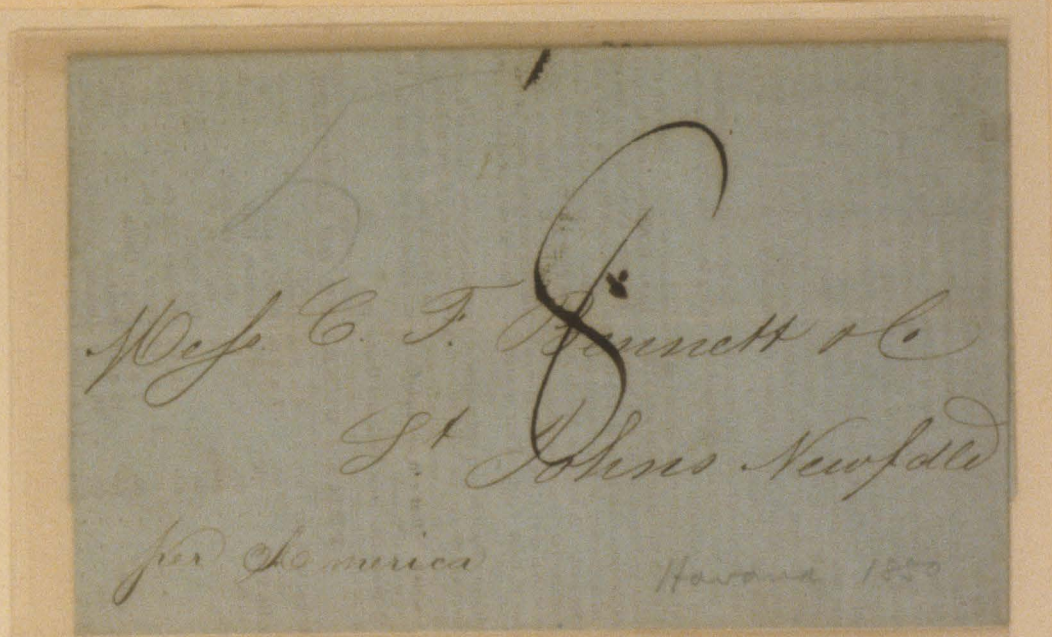 8
Messrs. C. F. Bennett & Co
St Johns Newfdld
per America
Havana 1850